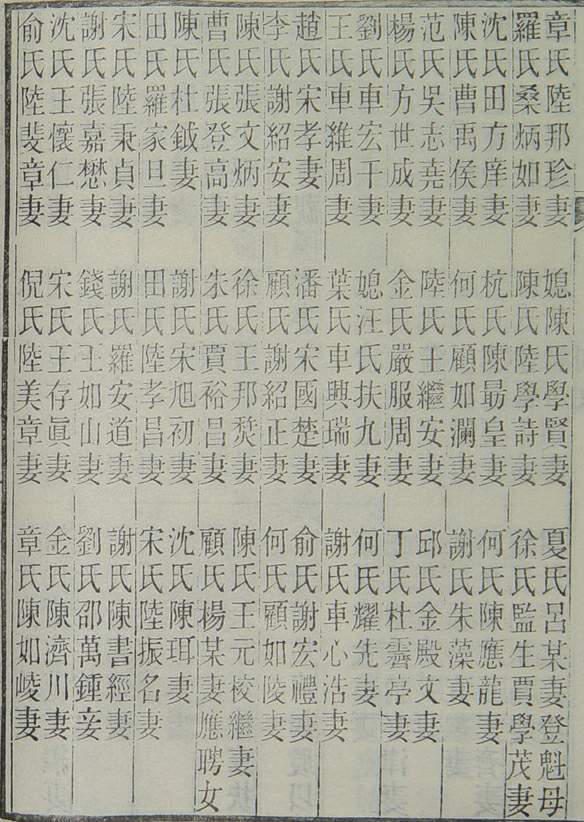 章氏陸邦珍妻 媳陳氏學賢妻 夏氏呂某妻登魁母
羅氏桑炳如妻 陳氏陸學詩妻 徐氏監生賈學茂妻
沈氏田方庠妻 杭氏陳最皇妻 何氏陳應龍妻
陳氏曹禹侯妻 何氏顧如瀾妻 謝氏朱藻妻
范氏吳志堯妻 陸氏王繼安妻 邱氏金殿文妻
楊氏方世成妻 金氏嚴服周妻 丁氏杜霽亭妻
劉氏車宏干妻 媳汪氏扶九妻 何氏耀先妻
王氏車維周妻 葉氏車興瑞妻 謝氏車心浩妻
趙氏宋孝妻 潘氏宋國楚妻 俞氏謝宏禮妻
李氏謝紹安妻 顧氏謝紹正妻 何氏顧如陵妻
陳氏張文炳妻 徐氏王邦焚妻 陳氏王元校繼妻
曹氏張登高妻 朱氏賈裕昌妻 顧氏楊某妻應聘女
陳氏杜鉞妻 謝氏宋旭初妻 沈氏陳珥妻
田氏羅家旦妻 田氏陸孝昌妻 宋氏陸振名妻
宋氏陸秉貞妻 謝氏羅安道妻 謝氏陳書經妻
謝氏張嘉懋妻 錢氏王如山妻 劉氏邵萬鍾妾
沈氏王懷仁妻 宋氏王存眞妻 金氏陳濟川妻
俞氏陸斐章妻 倪氏陸美章妻 章氏陳如崚妻